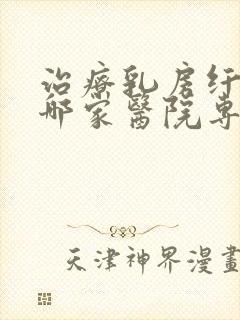 治療乳房纤
哪家醫院專
天津神界漫畫